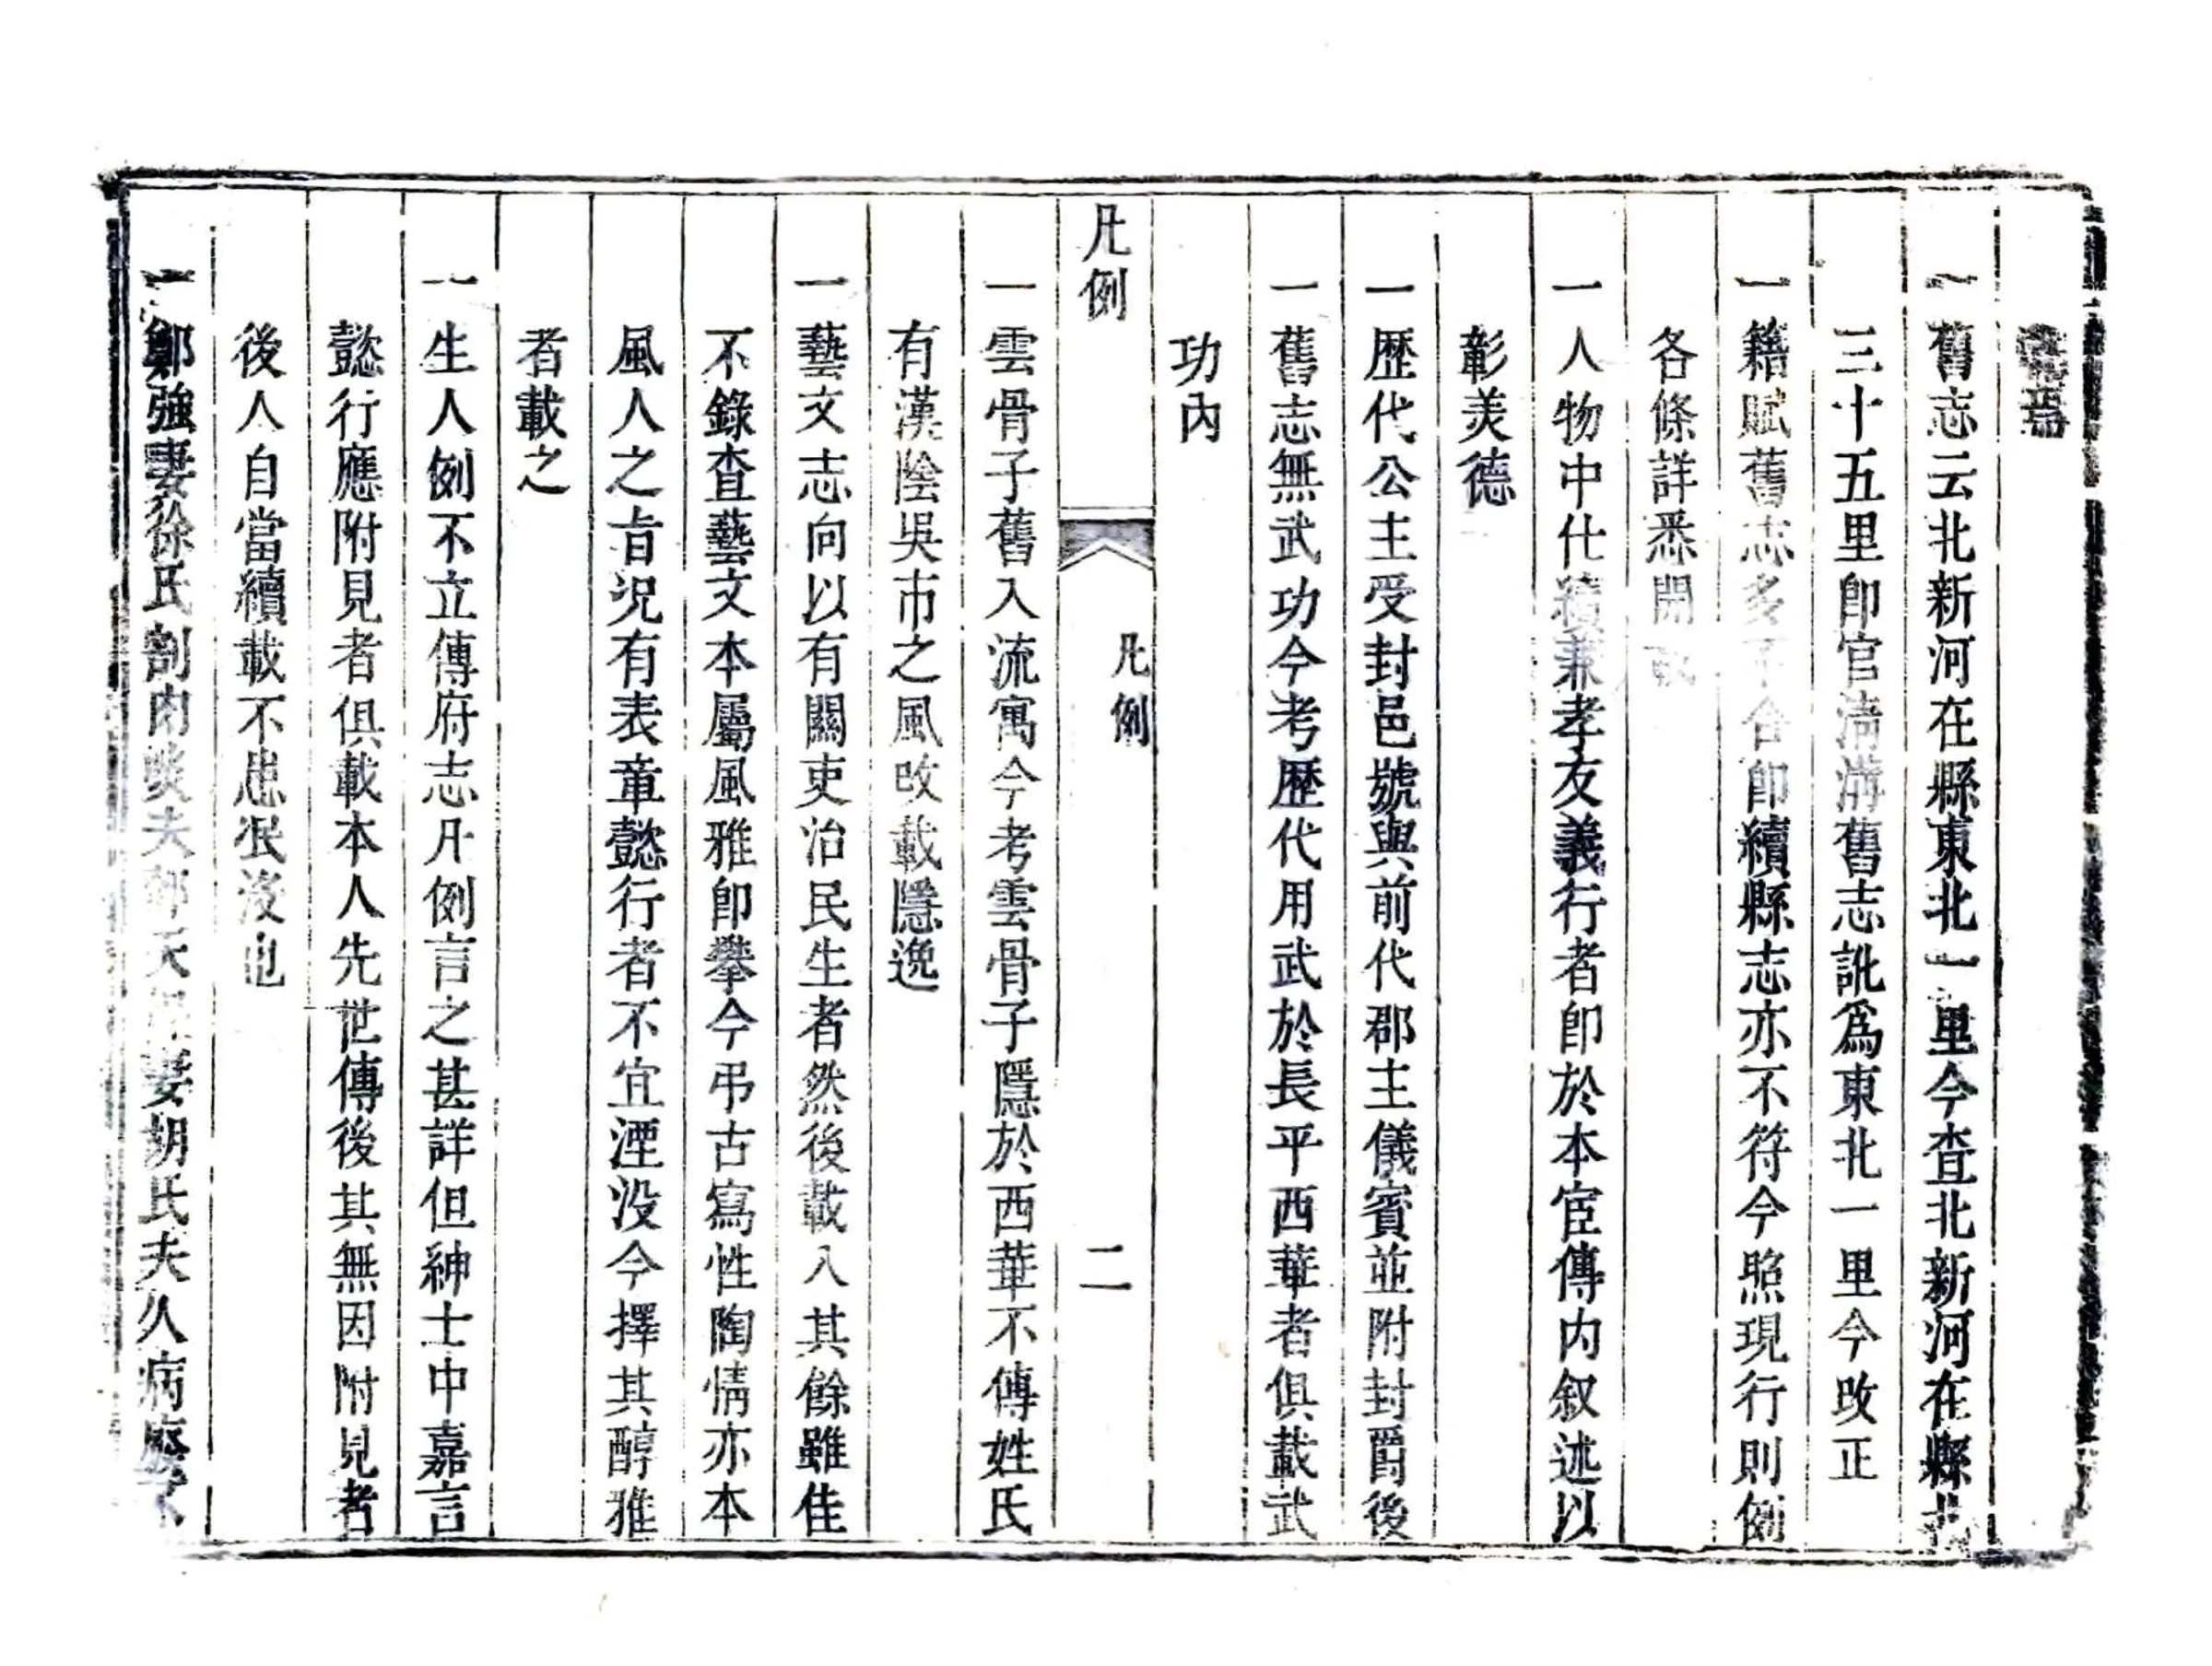 一舊志云北新河在縣東北一里今查北新河在縣北
三十五里卽官淸溝舊志訛爲東北一里今攺正
一籍賦舊志多不合卽續縣志亦不符今照現行則例
各條詳悉開載
一人物中仕績兼孝友義行者卽於本宦傳内叙述以
彰美德
一歷代公主受封邑號與前代郡主儀賓並附封爵後
一舊志無武功今考歷代用武於長平西華者俱載武
功内
凡例
凡例
二
一雲骨子舊入流寓今考雲骨子隱於西華不傳姓氏
有漢陰吳市之風攺載隱逸
一藝文志向以有關吏治民生者然後載入其餘雖佳
不錄査藝文本屬風雅卽攀今弔古寫性陶情亦本
風人之旨況有表章懿行者不宜湮没今擇其醇雅
者載之
一生人例不立傳府志凡例言之甚詳但紳士中嘉言
懿行應附見者俱載本人先世傳後其無因附見者
後人自當續載不患泯沒也
一鄭強妻徐氏割肉啖夫鄭天妻胡氏夫久病廢不